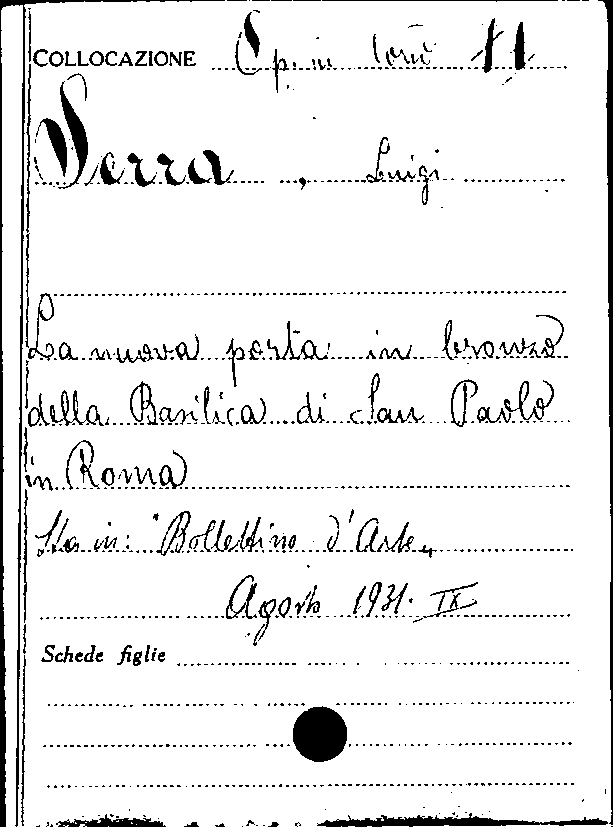 COLLOCAZIONE Op. in 11
Serra, Luigi
La nuova porta in bronzo
della Basilica di San Paolo
in Roma
Sta in: "Bollettino d'Arte„
Agosto 1931. IX
Schede figlie